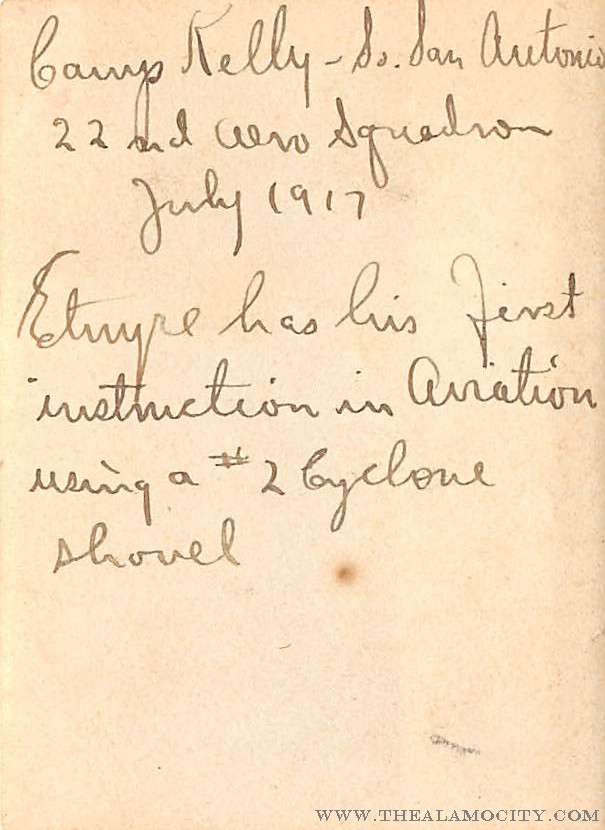 Camp Kelly - So. San Antonio
22nd Aero Squadron
July 1917
Etnyre has his first
instruction in Aviation
using a #2 Cyclone
shovel
WWW.THEALAMOCITY.COM